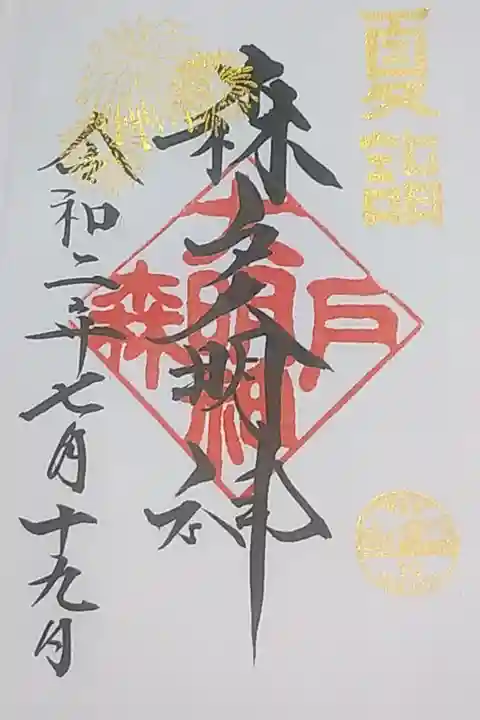 夏詣
森戸大明神
森戸大明神
令和二年七月十九日